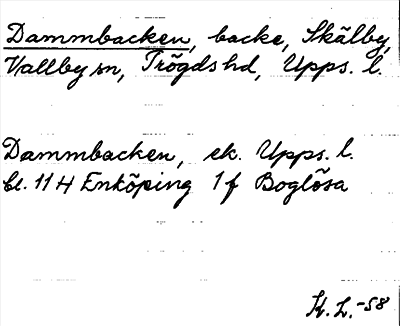 Dammbacken, backe, Skälby,
Vallby sn, Trögds hd, Upps. l.
Dammbacken, ek. Upps. l.
bl. 11 H Enköping 1 f Boglösa
K. L. -58